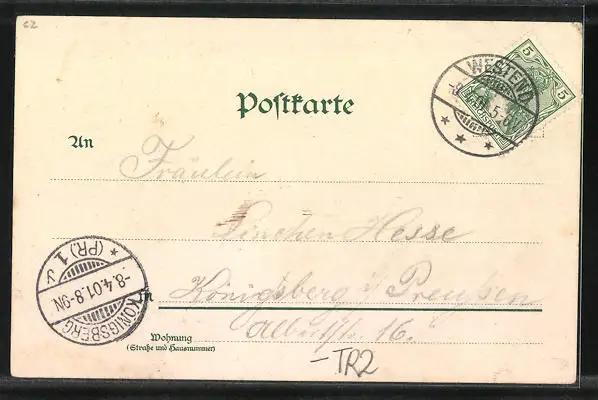 cz
WESTEND
5-6N
5
5
Postkarte
An
Fräulein
Linchen Hesse
in Königsberg i/ Preußen
Albertstr. 16.
Wohnung
(Straße und Hausnummer)
KÖNIGSBERG
* (PR.) 1 *
-8.4.01.8-9N
-TR2